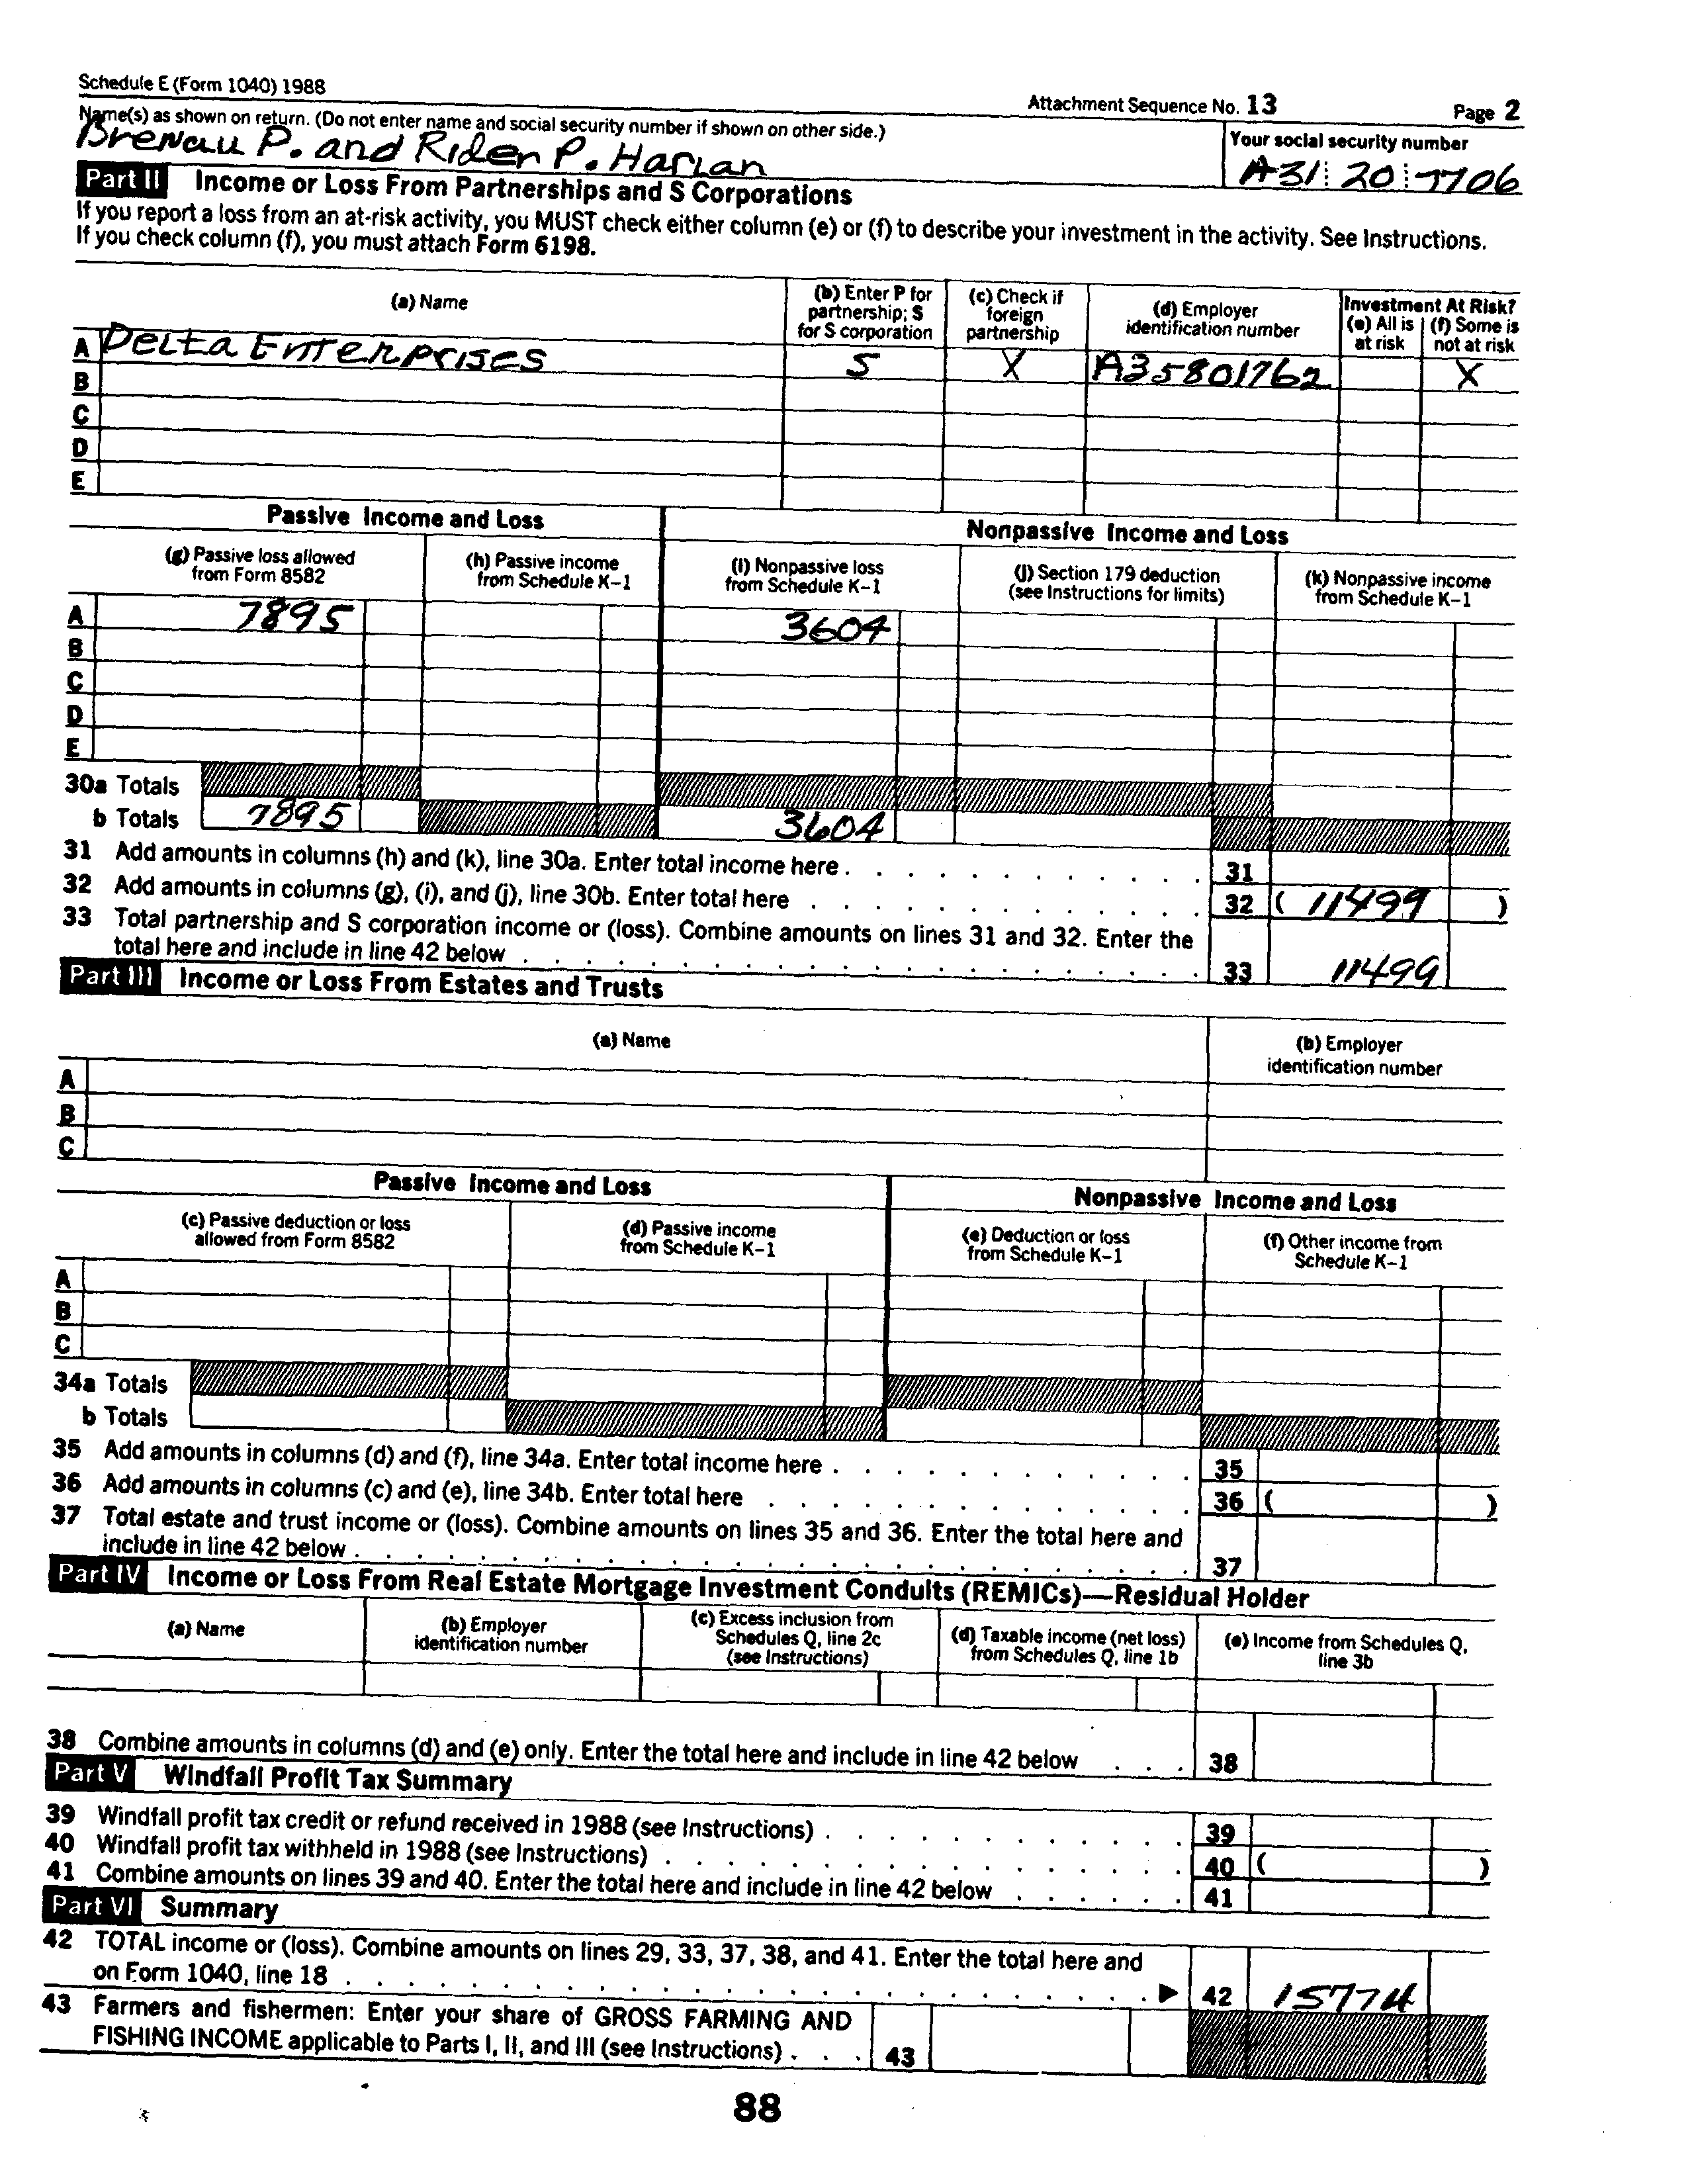 Schedule E (Form 1040) 1988
Attachment Sequence No. 13
Page 2
Name(s) as shown on return. (Do not enter name and social security number if shown on other side.)
Your social security number
Brenau P. and Riden P. Harlan
A31 20 7706
Part II Income or Loss From Partnerships and S Corporations
If you report a loss from an at-risk activity, you MUST check either column (e) or (f) to describe your investment in the activity. See Instructions.
If you check column (f), you must attach Form 6198.
(a) Name
(b) Enter P for partnership; S for S corporation
(c) Check if foreign partnership
(d) Employer identification number
Investment At Risk?
(e) All is at risk
(f) Some is not at risk
A Delta Enterprises S X A35801762 X
B
C
D
E
Passive Income and Loss
Nonpassive Income and Loss
(g) Passive loss allowed from Form 8582
(h) Passive income from Schedule K-1
(i) Nonpassive loss from Schedule K-1
(j) Section 179 deduction (see Instructions for limits)
(k) Nonpassive income from Schedule K-1
A 7895 3604
B
C
D
E
30a Totals
b Totals 7895 3604
31 Add amounts in columns (h) and (k), line 30a. Enter total income here . 31
32 Add amounts in columns (g), (i), and (j), line 30b. Enter total here 32 ( 11499 )
33 Total partnership and S corporation income or (loss). Combine amounts on lines 31 and 32. Enter the
total here and include in line 42 below 33 11499
Part III Income or Loss From Estates and Trusts
(a) Name
(b) Employer identification number
A
B
C
Passive Income and Loss
Nonpassive Income and Loss
(c) Passive deduction or loss allowed from Form 8582
(d) Passive income from Schedule K-1
(e) Deduction or loss from Schedule K-1
(f) Other income from Schedule K-1
A
B
C
34a Totals
b Totals
35 Add amounts in columns (d) and (f), line 34a. Enter total income here . 35
36 Add amounts in columns (c) and (e), line 34b. Enter total here 36 ( )
37 Total estate and trust income or (loss). Combine amounts on lines 35 and 36. Enter the total here and
include in line 42 below . 37
Part IV Income or Loss From Real Estate Mortgage Investment Conduits (REMICs)—Residual Holder
(a) Name
(b) Employer identification number
(c) Excess inclusion from Schedules Q, line 2c (see Instructions)
(d) Taxable income (net loss) from Schedules Q, line 1b
(e) Income from Schedules Q, line 3b
38 Combine amounts in columns (d) and (e) only. Enter the total here and include in line 42 below 38
Part V Windfall Profit Tax Summary
39 Windfall profit tax credit or refund received in 1988 (see Instructions) . 39
40 Windfall profit tax withheld in 1988 (see Instructions) . 40 ( )
41 Combine amounts on lines 39 and 40. Enter the total here and include in line 42 below 41
Part VI Summary
42 TOTAL income or (loss). Combine amounts on lines 29, 33, 37, 38, and 41. Enter the total here and
on Form 1040, line 18 ▶ 42 15774
43 Farmers and fishermen: Enter your share of GROSS FARMING AND
FISHING INCOME applicable to Parts I, II, and III (see Instructions) . 43
88